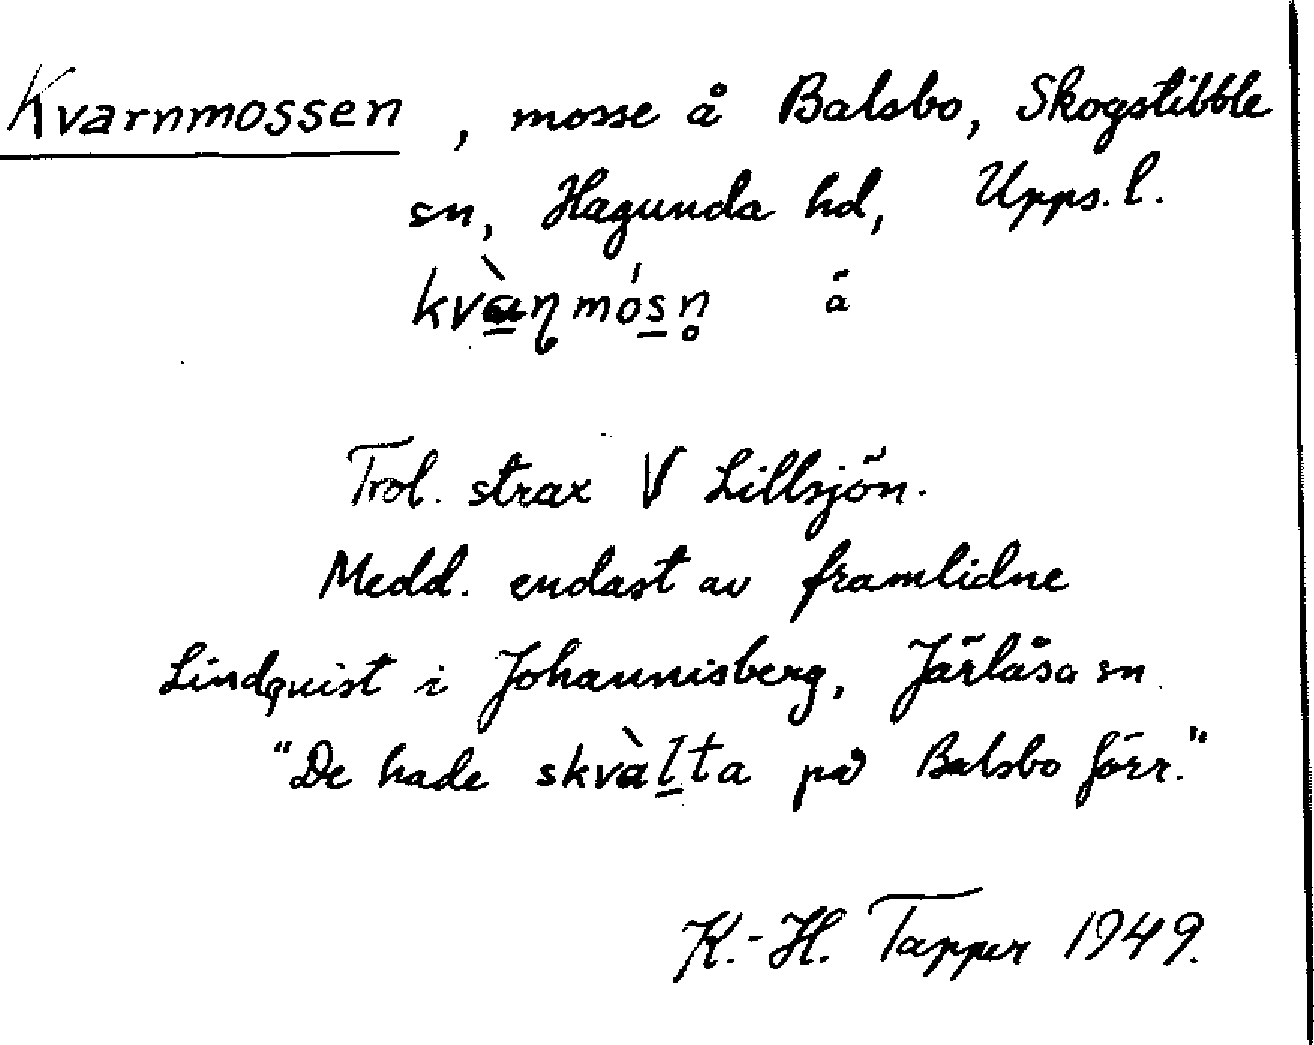 Kvarnmossen, mosse å Balsbo, Skogstibble
sn, Hagunda hd, Upps. l.
kvàɳmósn̥ ā
Trol. strax V Lillsjön.
Medd. endast av framlidne
Lindquist i Johannisberg, Järlåsa sn
"De hade skvàlta på Balsbo förr."
K.-H. Tapper 1949.